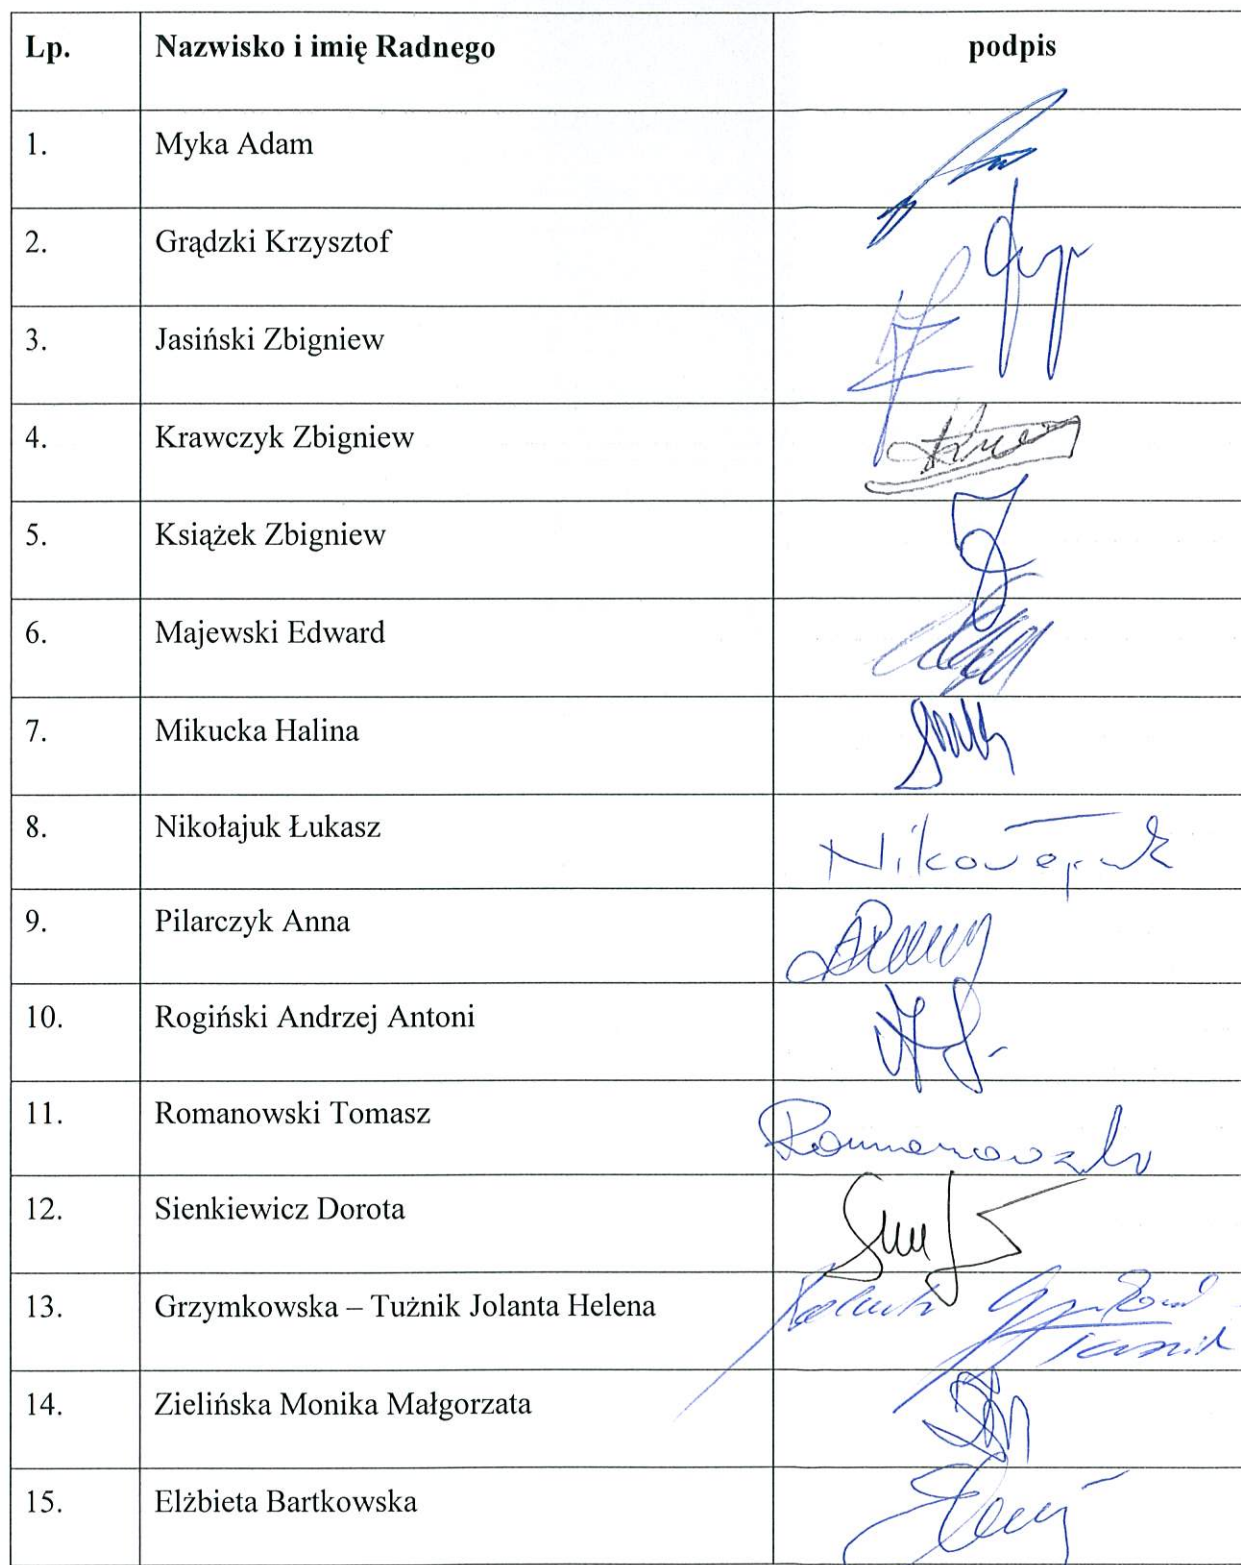 Lp. Nazwisko i imię Radnego podpis
1. Myka Adam
2. Grądzki Krzysztof
3. Jasiński Zbigniew
4. Krawczyk Zbigniew
5. Książek Zbigniew
6. Majewski Edward
7. Mikucka Halina
8. Nikołajuk Łukasz Nikołajuk
9. Pilarczyk Anna
10. Rogiński Andrzej Antoni
11. Romanowski Tomasz Romanowski
12. Sienkiewicz Dorota
13. Grzymkowska – Tużnik Jolanta Helena
14. Zielińska Monika Małgorzata
15. Elżbieta Bartkowska